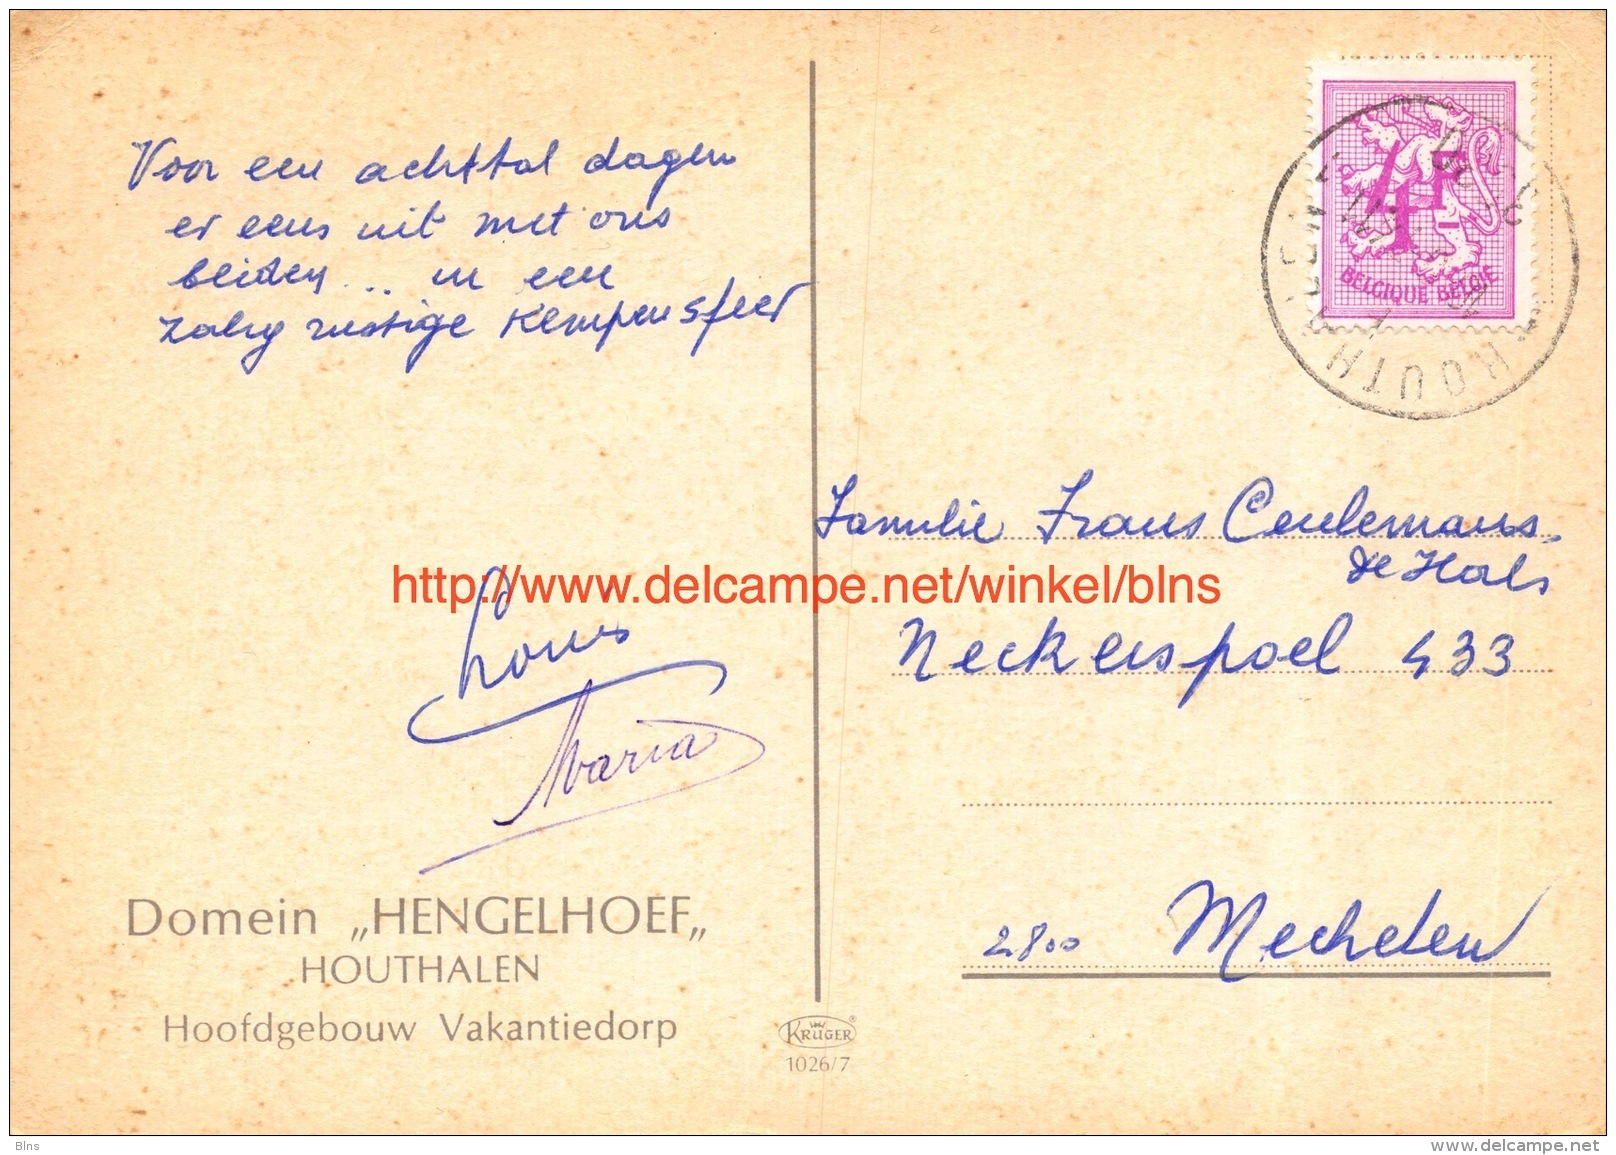 Voor een achttal dagen
er eens uit met ons
beiden... in een
zalig rustige Kempensfeer
Louis
Maria
Domein „HENGELHOEF„
HOUTHALEN
Hoofdgebouw Vakantiedorp
KRÜGER®
1026/7
4F
BELGIQUE BELGIE
HOUTHALEN
Familie Frans Ceulemans.
De Hals
Neckerspoel 433
2800 Mechelen
http://www.delcampe.net/winkel/blns
Blns
www.delcampe.net